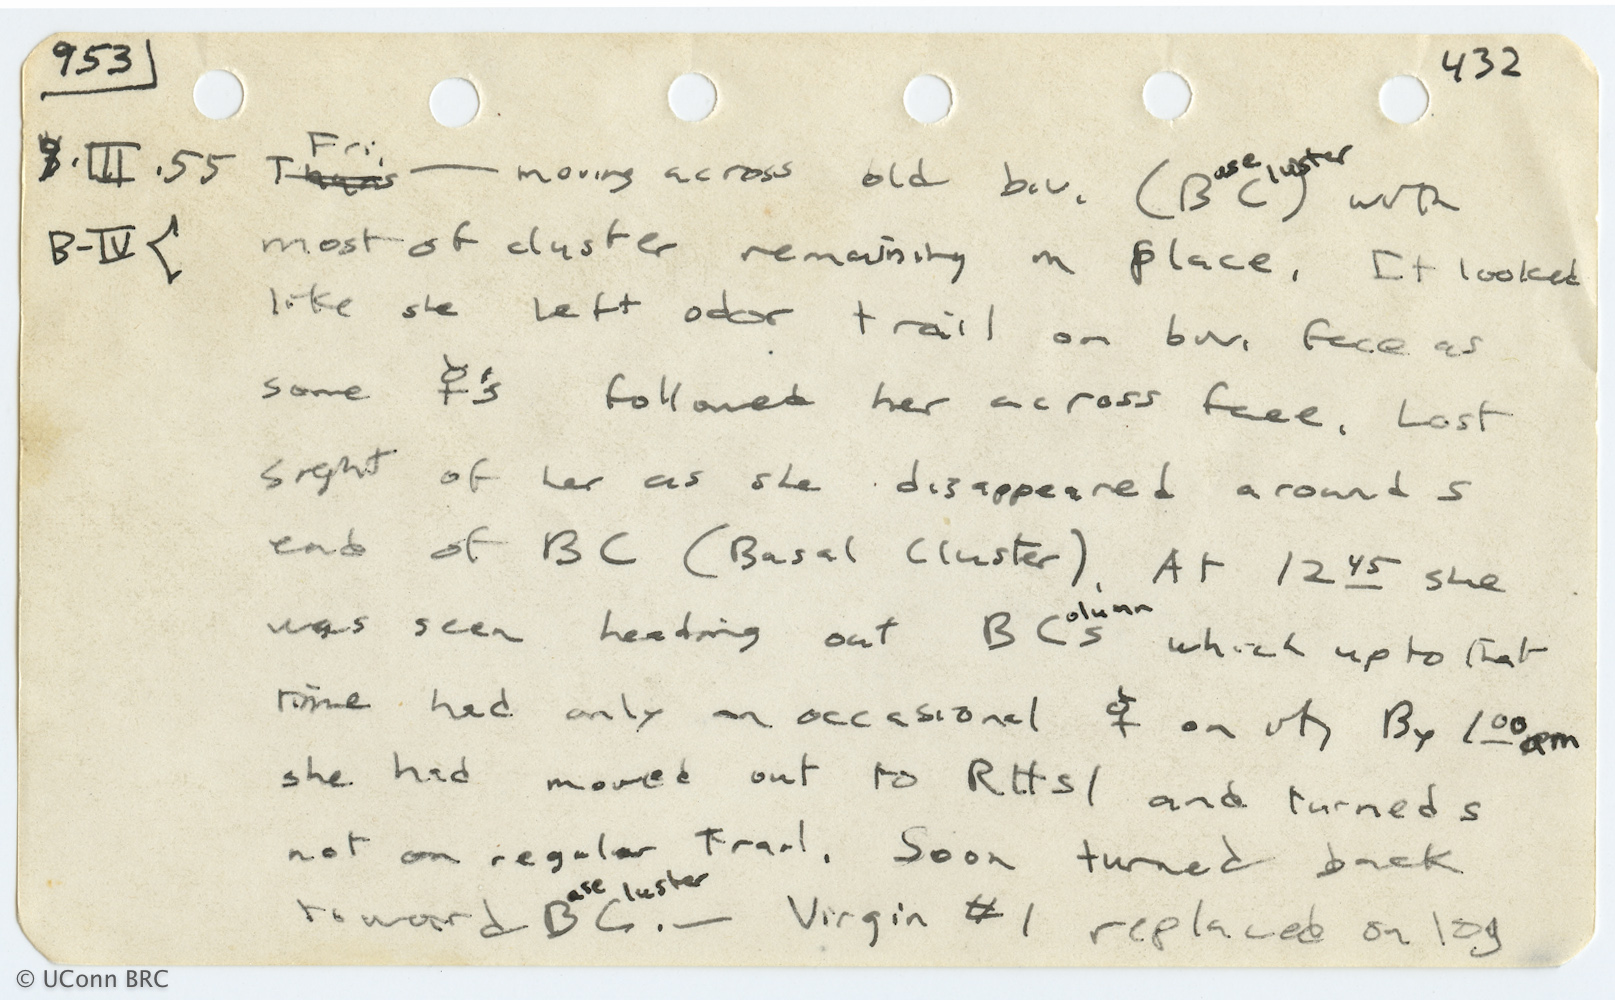 953 432
8.III.55 Thurs Fri. — moving across old biv. (Base Cluster) with
B-IV { most of cluster remaining in place. It looked
like she left odor trail on biv. face as
some ☿'s followed her across face. Lost
sight of her as she disappeared around S
end of BC (Basal Cluster). At 12 45 she
was seen heading out BColumn S which up to that
time had only an occasional ☿ on it. By 1 00 pm
she had moved out to RHS1 and turned S
not on regular trail. Soon turned back
toward Base Cluster. — Virgin #1 replaced on log
© UConn BRC